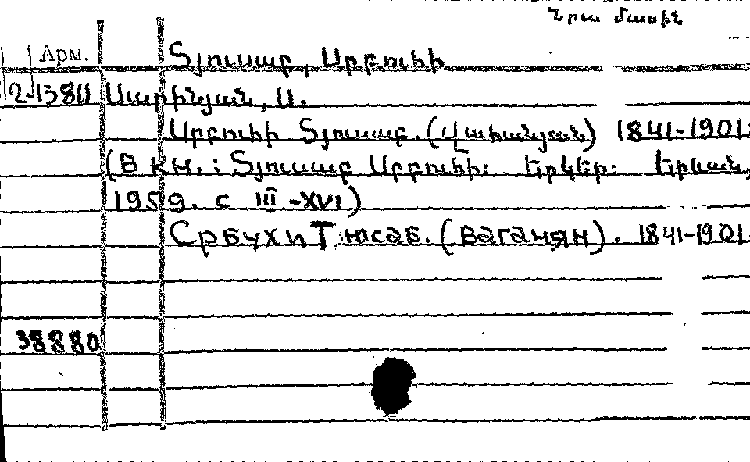 Նրա մասին
Арм. Տյուսաբ, Սրբուհի
2-1380 Սարինյան, Ս.
Սրբուհի Տյուսաբ. (Վահանյան) 1841-1901.
(В кн.: Տյուսաբ Սրբուհի: Երկեր: Երևան,
1959. с III-XVI)
Србухи Тюсаб. (Ваганян). 1841-1901.
38880